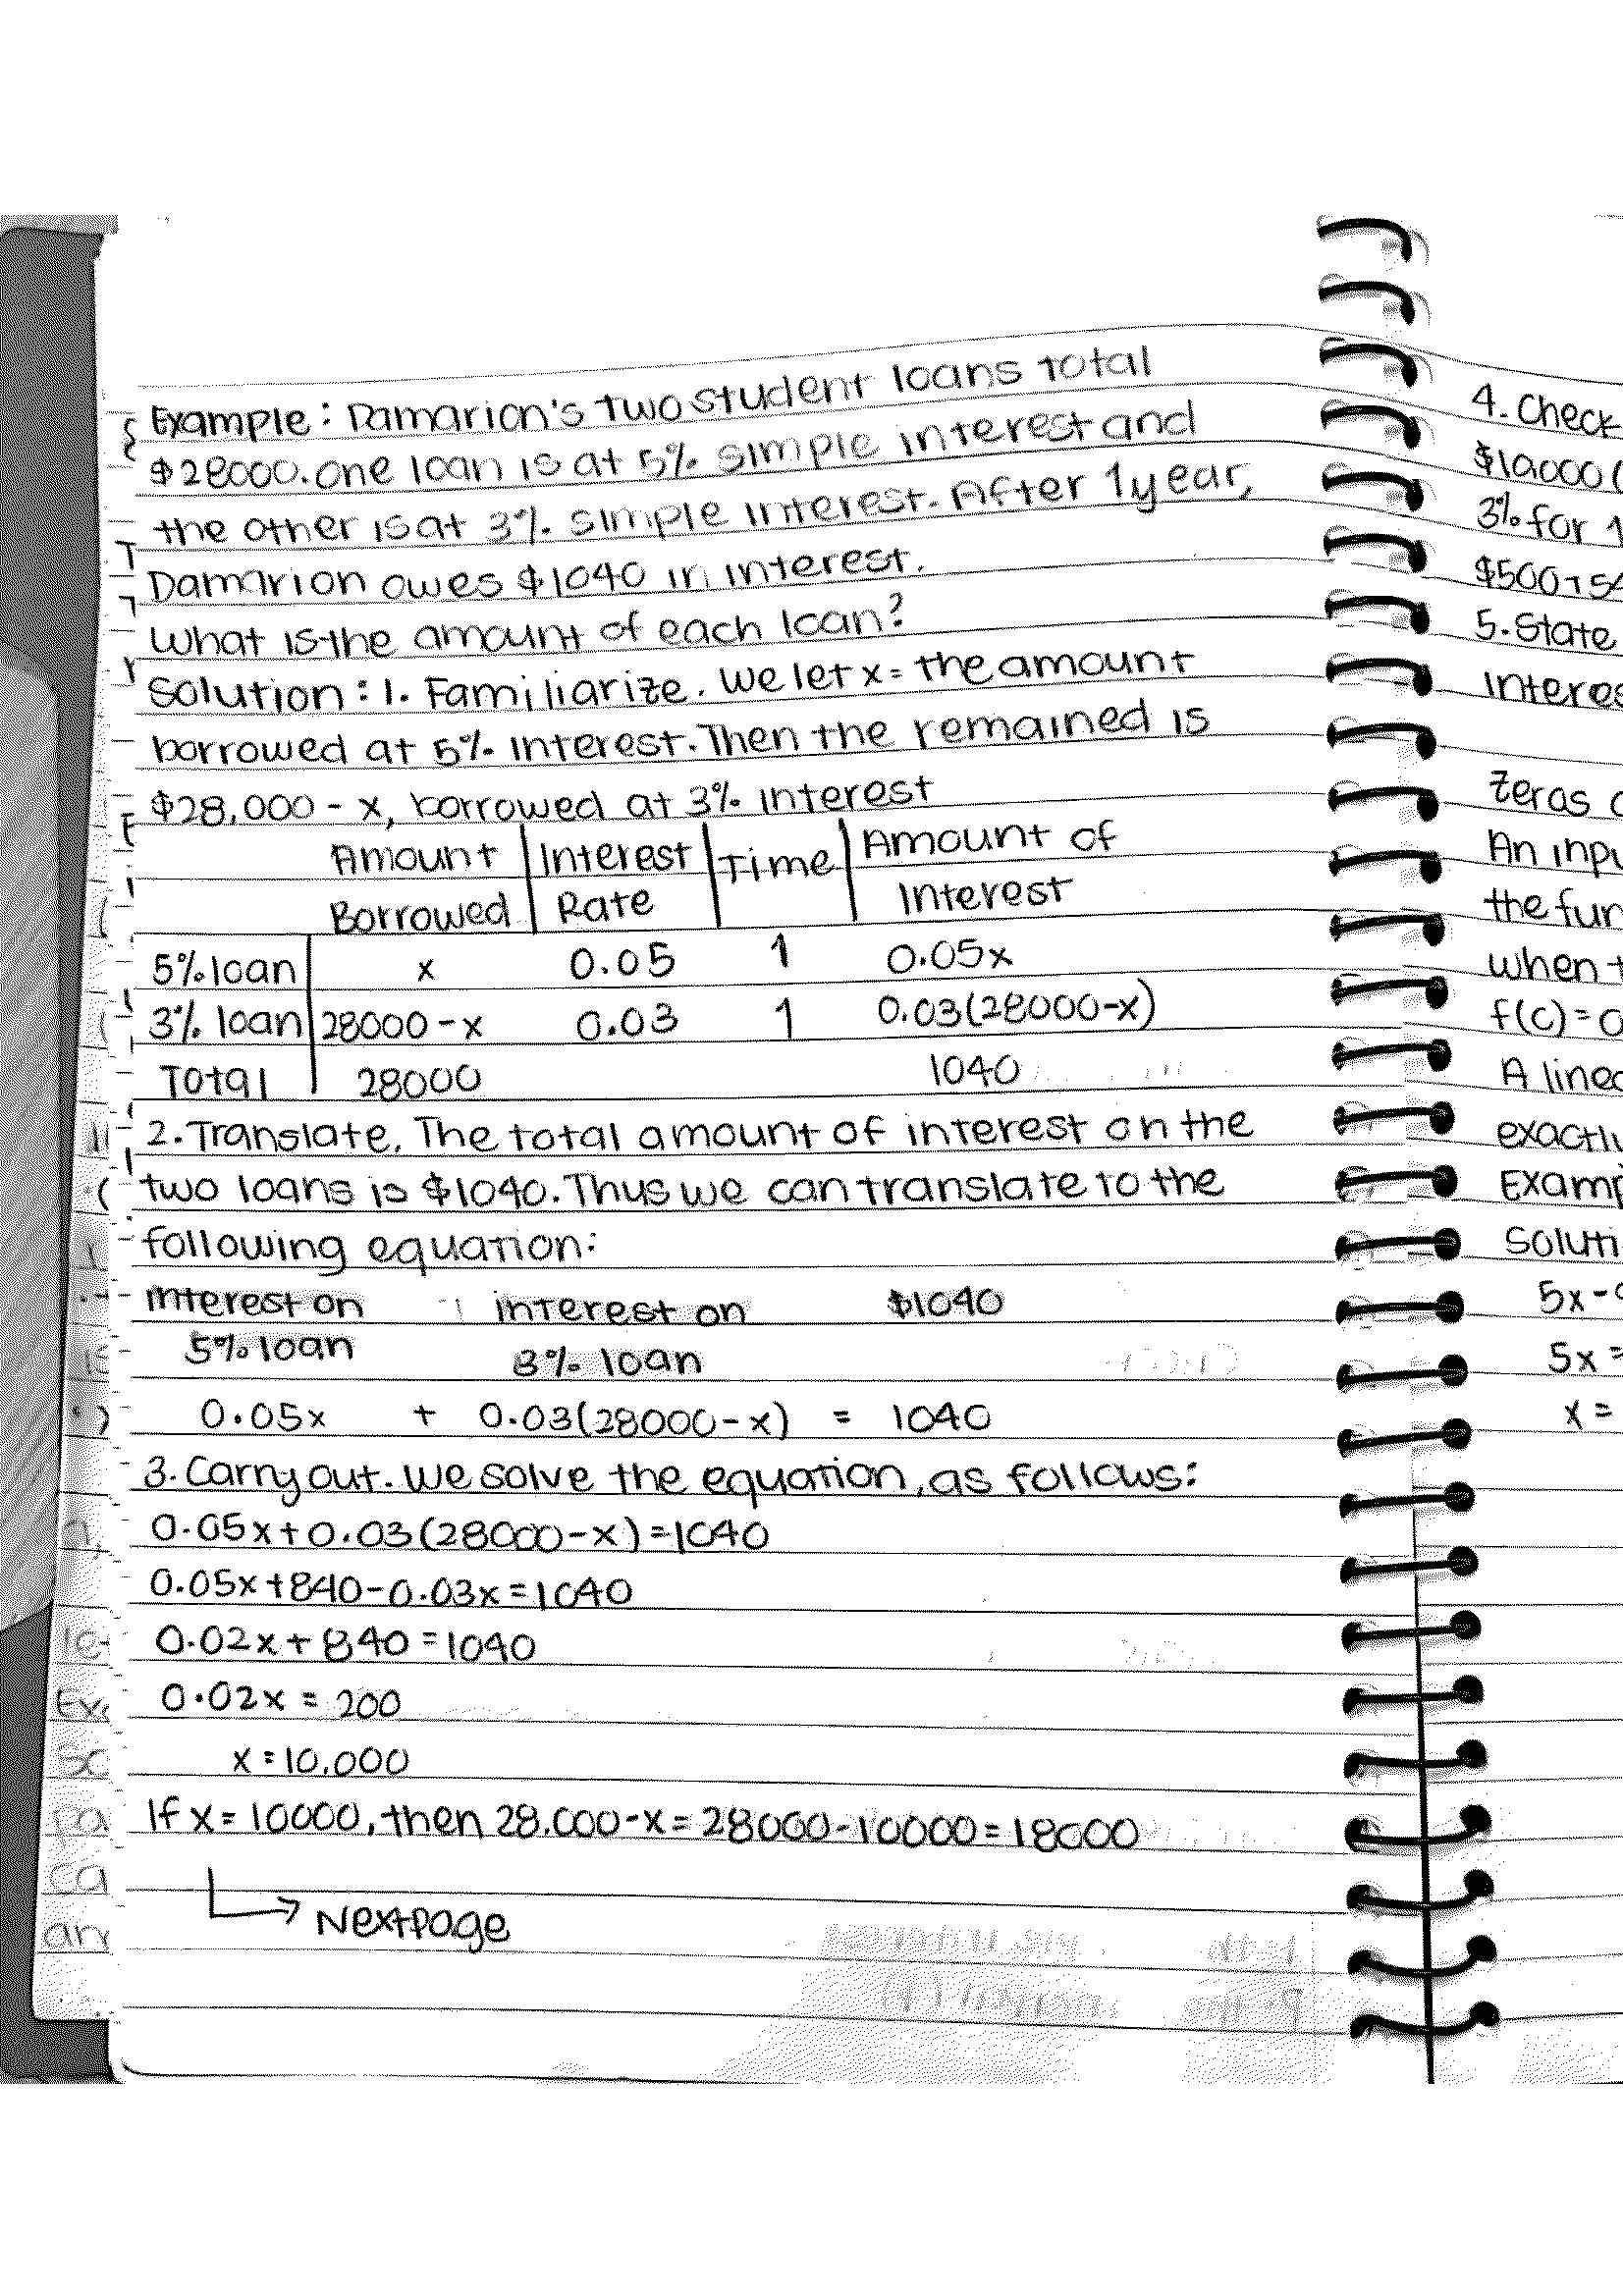 Example: Damarion's two student loans total
$28000. One loan is at 5% simple interest and
the other is at 3% simple interest. After 1 year,
Damarion owes $1040 in interest.
What is the amount of each loan?
Solution: 1. Familiarize. We let x = the amount
borrowed at 5% interest. Then the remained is
$28,000 - x, borrowed at 3% interest
Amount Interest Time Amount of
Borrowed Rate Interest
5% loan x 0.05 1 0.05x
3% loan 28000-x 0.03 1 0.03(28000-x)
Total 28000 1040
2. Translate. The total amount of interest on the
two loans is $1040. Thus we can translate to the
following equation:
interest on interest on $1040
5% loan 3% loan
0.05x + 0.03(28000-x) = 1040
3. Carry out. We solve the equation, as follows:
0.05x+0.03(28000-x)=1040
0.05x+840-0.03x=1040
0.02x+840=1040
0.02x = 200
x=10,000
If x=10000, then 28,000-x=28000-10000=18000
Next page
4. Check
$10000(
3% for 1
$500+54
5. State
interes
Zeros o
An inpu
the fun
when t
f(c)=0
A linea
exactly
Examp
Soluti
5x-
5x=
x=